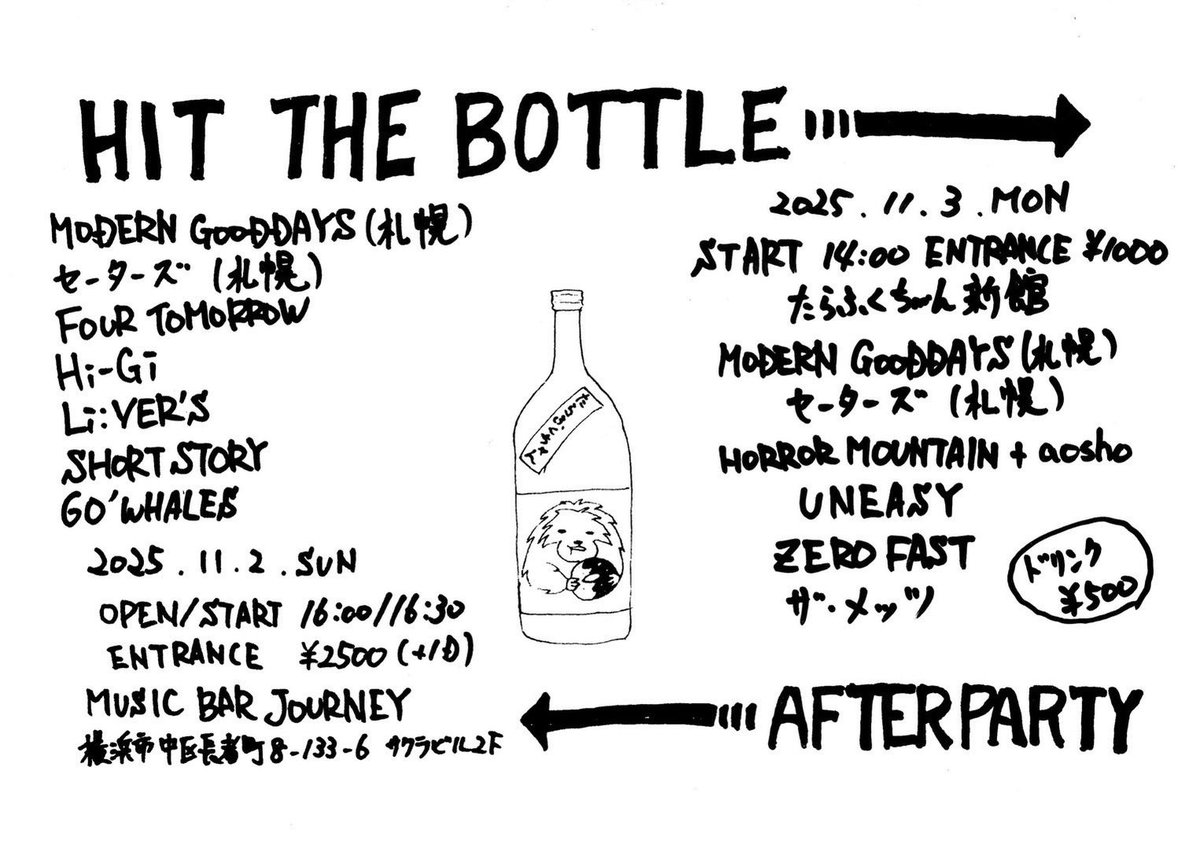 HIT THE BOTTLE
MODERN GOODDAYS (札幌)
セーターズ (札幌)
FOUR TOMORROW
Hi-Gi
Li:VER'S
SHORT STORY
GO'WHALES
2025.11.2.SUN
OPEN/START 16:00//16:30
ENTRANCE ¥2500 (+1D)
MUSIC BAR JOURNEY
横浜市中区長者町8-133-6 サクラビル2F
2025.11.3.MON
START 14:00 ENTRANCE ¥1000
たらふくちゃん新館
MODERN GOODDAYS (札幌)
セーターズ (札幌)
HORROR MOUNTAIN + aosho
UNEASY
ZERO FAST
ザ・メッツ
ドリンク
¥500
AFTER PARTY